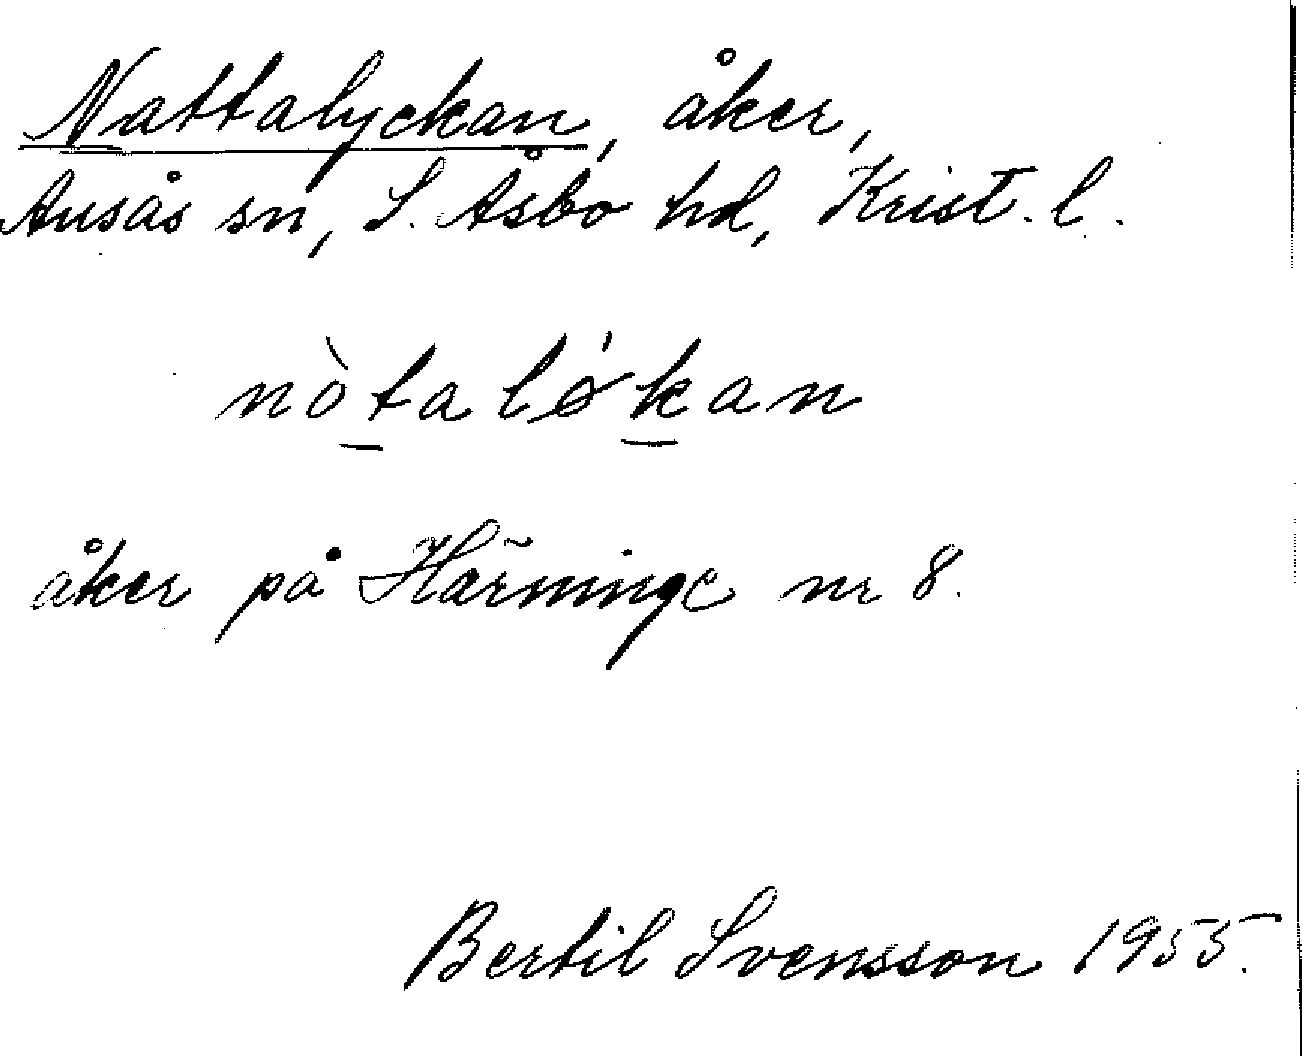 Nattalyckan, åker,
Ausås sn, S. Åsbo hd, Krist. l.
nòt̲aløḱ̲an
åker på Härninge nr 8.
Bertil Svensson 1955.